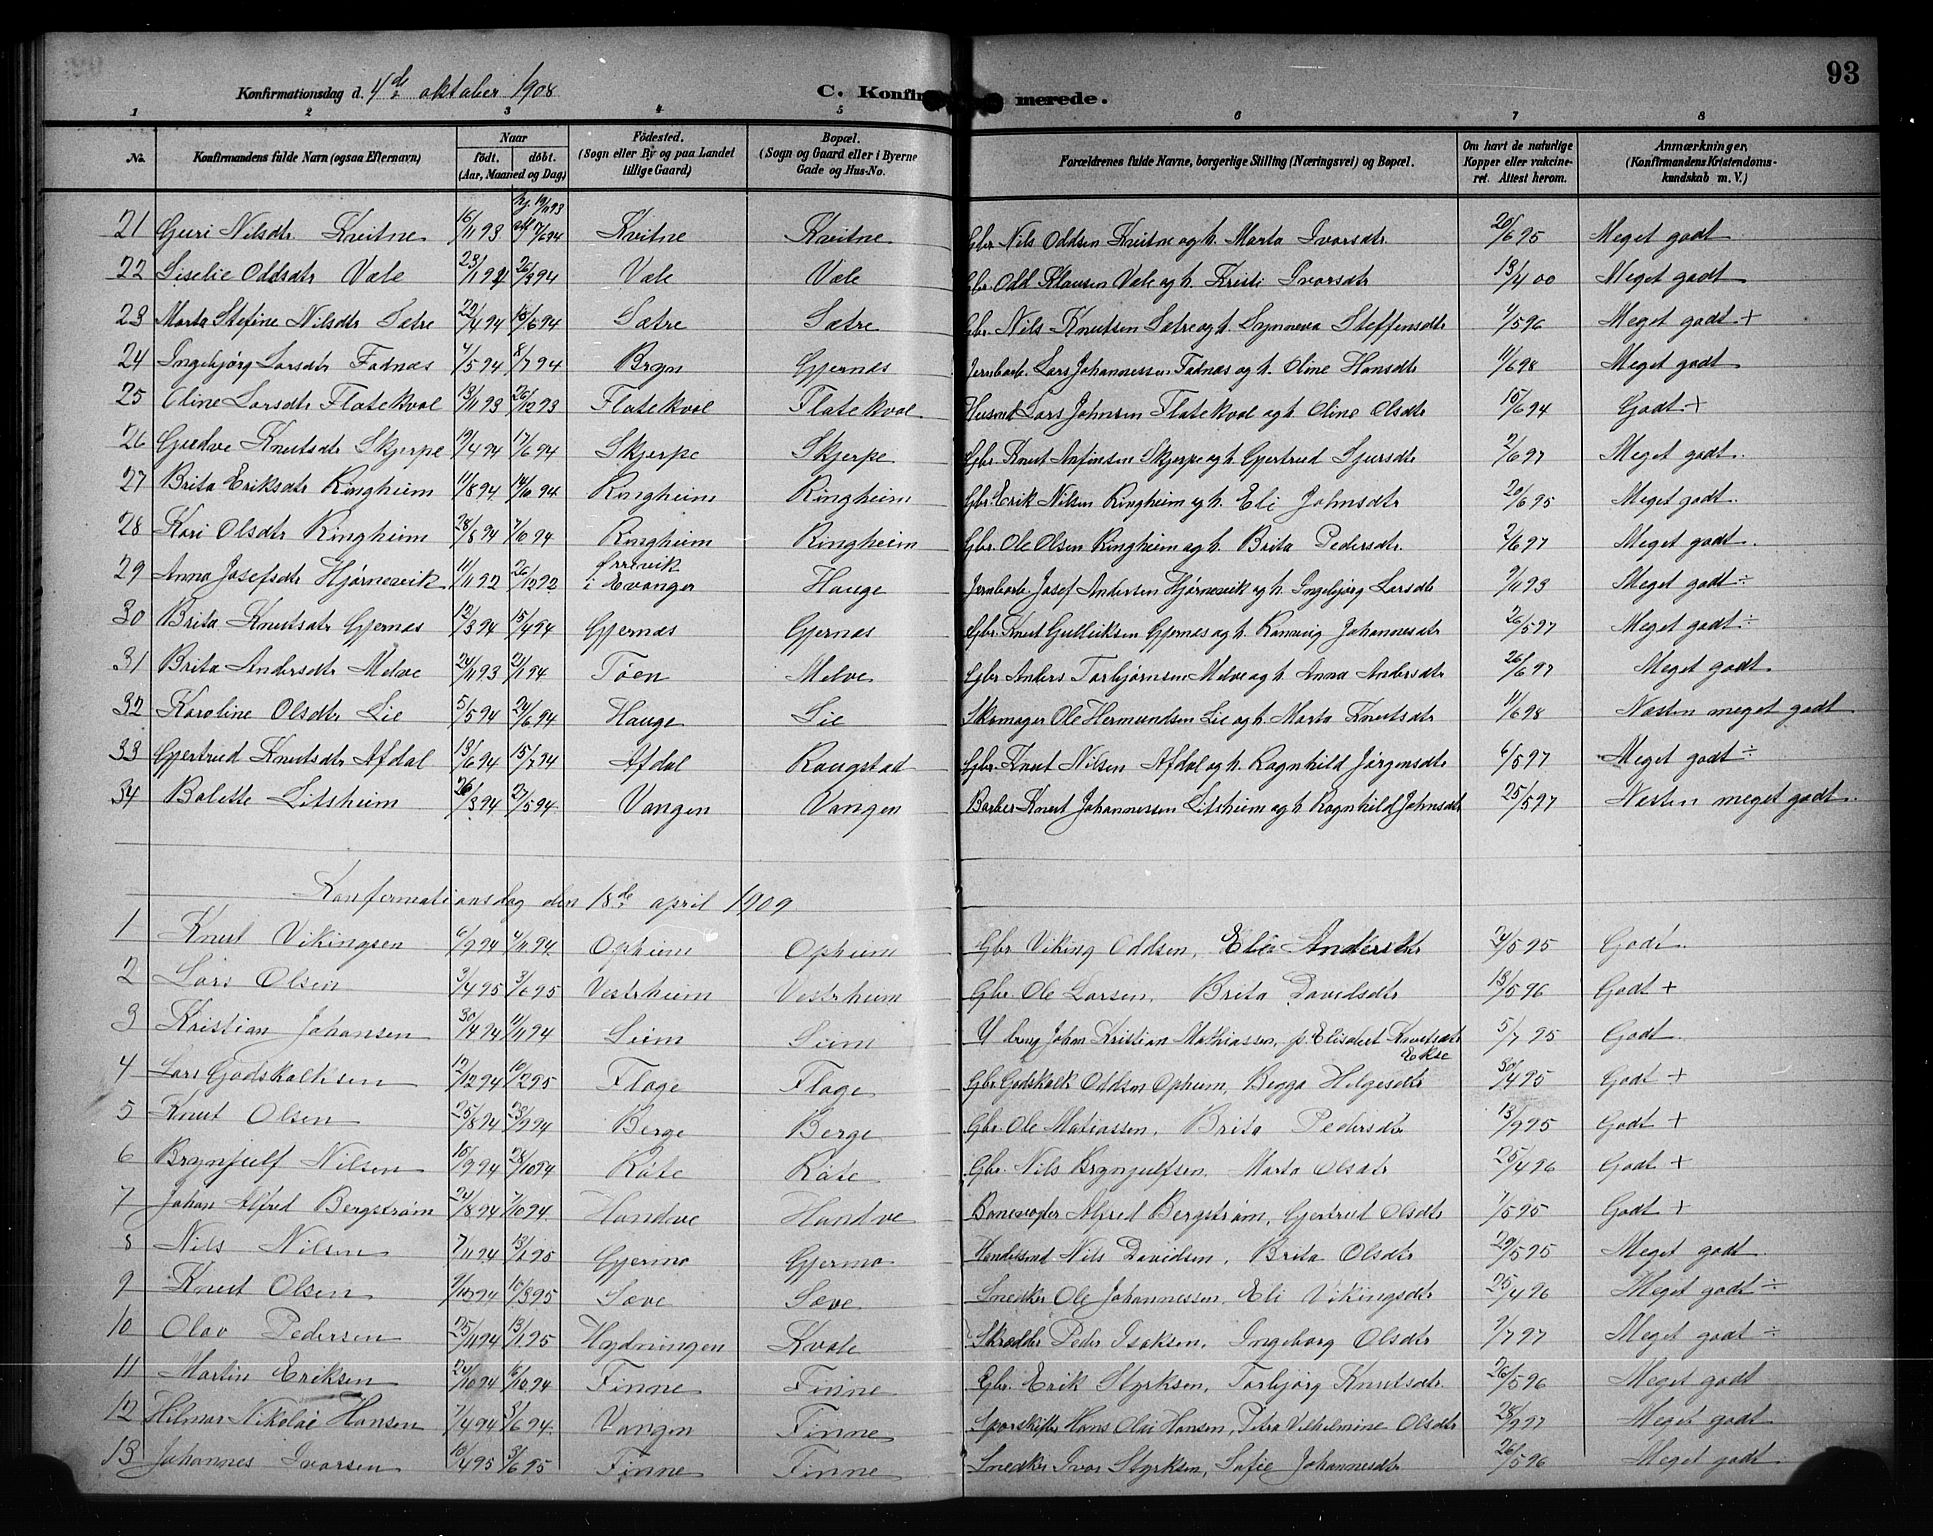 93
Konfirmationsdag d. 4de oktober 1908 C. Konfirmerede.
1 2 3 4 5 6 7 8
No. Konfirmandens fulde Navn (ogsaa Efternavn) Naar født. døbt. (Aar, Maaned og Dag) Fødested. (Sogn eller By og paa Landet tillige Gaard) Bopæl. (Sogn og Gaard eller i Byerne Gade og Hus-No. Forældrenes fulde Navne, borgerlige Stilling (Næringsvei) og Bopæl. Om havt de naturlige Kopper eller vakcineret. Attest herom. Anmærkninger, (Konfirmandens Kristendomskundskab m. V.)
21 Guri Nilsdtr Kvitne 16/11 93 Kvitne Kvitne Gbr. Nils Oddsen Kvitne og h. Marta Ivarsdtr 20/6 95 Meget godt
22 Siselie Oddsdtr Væle 26/3 94 Væle Væle Gbr. Odd Klausen Væle og h. Kristi Ivarsdtr 13/4 00 Meget godt
23 Marta Stefine Nilsdtr Sætre 22/4 94 Sætre Sætre Gbr. Nils Knutsen Sætre og h. Synneva Steffensdtr 5 96 Meget godt +
24 Ingebjørg Larsdtr Fadnæs 4/5 94 8/7 94 Bryn Gjernes Jernbarb. Lars Johannessen Fadnæs og h. Oline Hansdtr 11/6 98 Meget godt
25 Oline Larsdtr Flatekval 13/11 93 26/12 93 Flatekval Flatekval Husmd Lars Johnsen Flatekval og h. Oline Olsdtr 15/6 94 Godt +
26 Gudve Knutsdtr Skjerpe 19/4 94 17/6 94 Skjerpe Skjerpe Gbr. Knut Anfinsen Skjerpe og h. Gjertrud Sjursdtr 2/6 97 Meget godt.
27 Brita Eriksdtr Ringheim 11/8 94 14/10 94 Ringheim Ringheim Gbr. Erik Nilsen Ringheim og h. Eli Johnsdtr 20/6 95 Meget godt.
28 Kari Olsdtr Ringheim 28/8 94 7/10 94 Ringheim Ringheim Gbr. Ole Olsen Ringheim og h. Brita Pedersdtr. 2/6 97 Meget godt.
29 Anna Josefsdtr Hjørnevik 11/11 92 26/12 92 i Evanger Hauge Jernbarb. Josef Andersen Hjørnevik og h. Ingebjørg Larsdtr 9/11 93 Meget godt ÷
30 Brita Knutsdtr Gjernes 12/3 94 15/4 94 Gjernes Gjernes Gbr. Knut Gulleiksen Gjernes og h. Rannvig Johannesdtr 26/5 97 Meget godt ÷
31 Brita Andersdtr Melve 24/11 93 2/1 94 Tøen Melve Gbr. Anders Torbjørnsen Melve og h. Anna Andersdtr 26/6 97 Meget godt
32 Karoline Olsdtr Lie 5/5 94 24/6 94 Hauge Lie Skomager Ole Hermundsen Lie og h. Marta Knutsdtr 11/6 98 Næsten meget godt
33 Gjertrud Knutsdtr Afdal 13/6 94 15/7 94 Afdal Raugstad Gbr. Knut Nilsen Afdal og h. Ragnhild Jørgensdtr 6/5 97 Meget godt ÷
34 Bolette Litsheim 26/3 94 27/5 94 Vangen Vangen Barber Knut Johannessen Litsheim og h. Ragnhild Johnsdtr 25/5 97 Nesten meget godt.
Konfirmationsdag den 18de april 1909
1 Knut Vikingsen 6/9 94 4/11 94 Opheim Opheim Gbr Viking Oddsen, Eli Andersdtr 21/5 95 Godt.
2 Lars Olsen 3/4 95 3/6 95 Vestrheim Vestrheim Gbr. Ole Larsen, Brita Davidsdtr 13/5 96 Godt +
3 Kristian Johansen 30/4 94 11/11 94 Seim Seim Johan Kristian Mathiassen, p. Elisabet Knutsdtr Ekse 5/7 95 Godt
4 Lars Godskalksen 12/12 94 10/2 95 Flage Flage Gbr Godskalk Oddsen Opheim, Begga Helgesdtr 30/4 95 Godt +
5 Knut Olsen 25/8 94 23/9 94 Berge Berge Gbr. Ole Matiassen, Brita Pedersdtr 13/9 95 Godt +
6 Brynjulf Nilsen 16/9 94 28/10 94 Røte Røte Gbr. Nils Brynjulfsen, Marta Olsdtr 25/4 96 Godt +
7 Johan Alfred Bergstrøm 24/8 94 7/10 94. Handve Handve Banevogter Alfred Bergstrøm, Gjertrud Olsdtr 1/5 95 Godt +
8 Nils Nilsen 7/11 94 13/1 95 Gjerme Gjerme Handelsmd. Nils Davidsen, Brita Olsdtr 29/5 95 Meget godt.
9 Knut Olsen 9/12 94 10/3 95 Sæve Sæve Snedker Ole Johannessen, Eli Vikingsdtr 25/4 96 Meget godt ÷
10 Olav Pedersen 25/11 94 13/1 95 Hydningen Kvale Skrædder Peder Isaksen, Ingeborg Olsdtr 9/7 97 Meget godt ÷
11 Martin Eriksen 24/10 94 Finne Finne Gbr. Erik Styrksen, Torbjørg Knutsdtr. 26/5 96 Meget godt
12 Hilmar Nikolai Hansen 1/4 94 3/6 94. Vangen Finne Sporskifter Hans Olai Hansen, Petra Vilhelmine Olsdtr 28/9 97 Meget godt
13 Johannes Ivarsen 10/4 95 3/6 95 Finne Finne Snedker Ivar Styrksen, Sofie Johannesdtr 26/5 96 Meget godt.